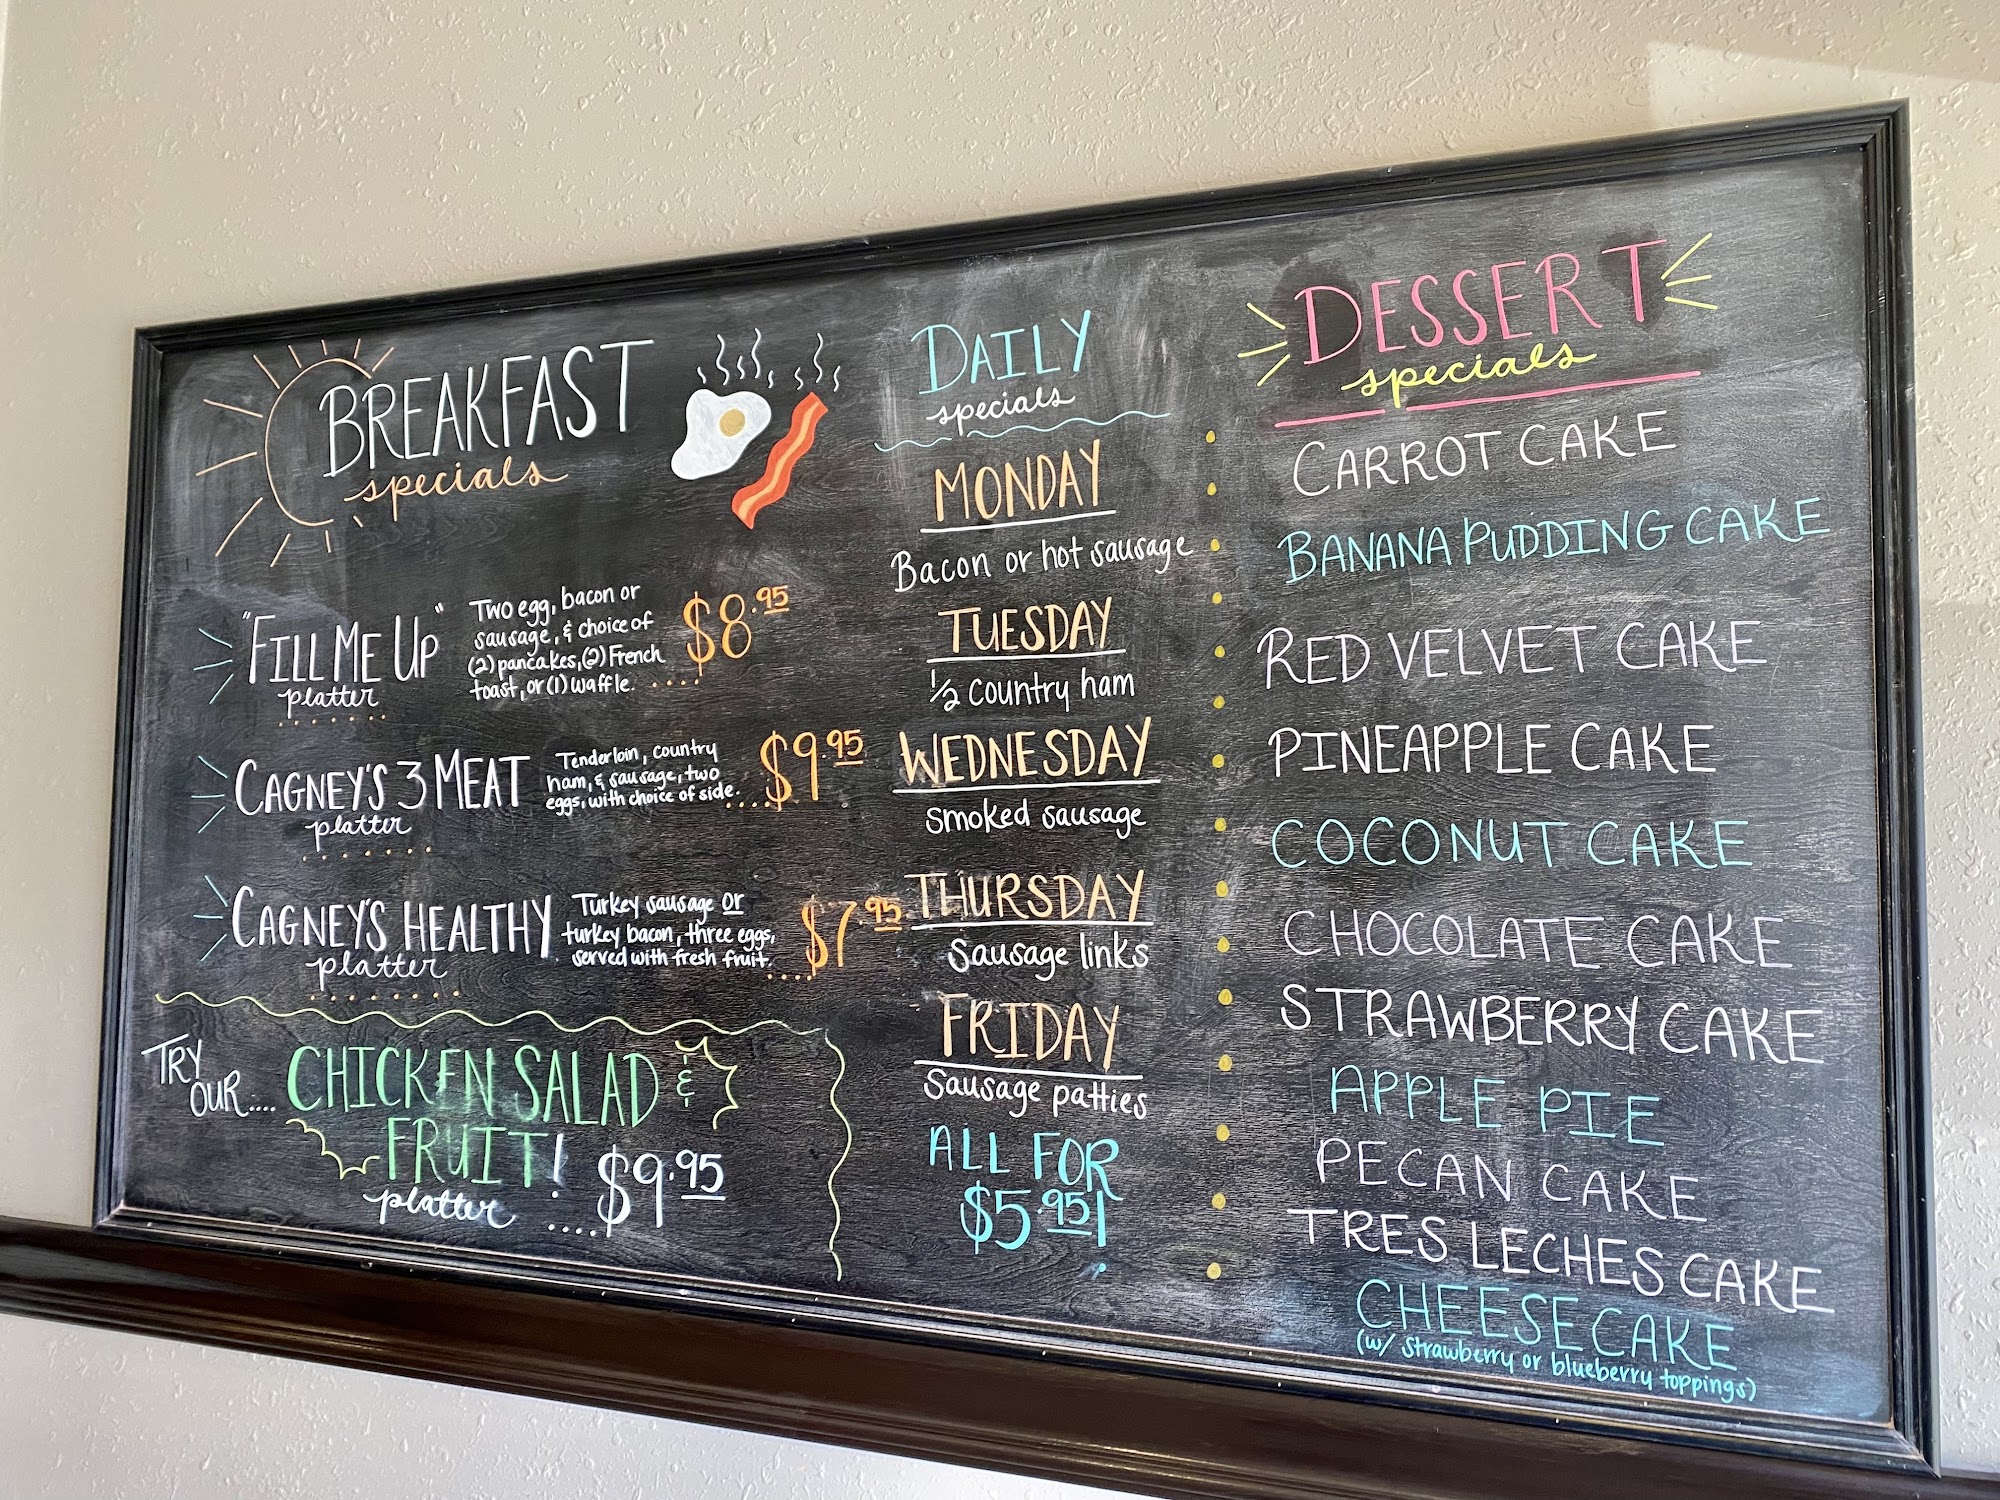 BREAKFAST
specials
"FILL ME UP"
platter
Two egg, bacon or
sausage, & choice of
(2) pancakes, (2) French
toast, or (1) waffle.....
$8.95
CAGNEY'S 3 MEAT
platter
Tenderloin, country
ham, & sausage, two
eggs, with choice of side.....
$9.95
CAGNEY'S HEALTHY
platter
Turkey sausage or
turkey bacon, three eggs,
served with fresh fruit.....
$7.95
TRY
OUR....
CHICKEN SALAD &
FRUIT!
platter .... $9.95
DAILY
specials
MONDAY
Bacon or hot sausage
TUESDAY
1/2 country ham
WEDNESDAY
smoked sausage
THURSDAY
Sausage links
FRIDAY
Sausage patties
ALL FOR
$5.95!
DESSERT
specials
CARROT CAKE
BANANA PUDDING CAKE
RED VELVET CAKE
PINEAPPLE CAKE
COCONUT CAKE
CHOCOLATE CAKE
STRAWBERRY CAKE
APPLE PIE
PECAN CAKE
TRES LECHES CAKE
CHEESECAKE
(w/ strawberry or blueberry toppings)